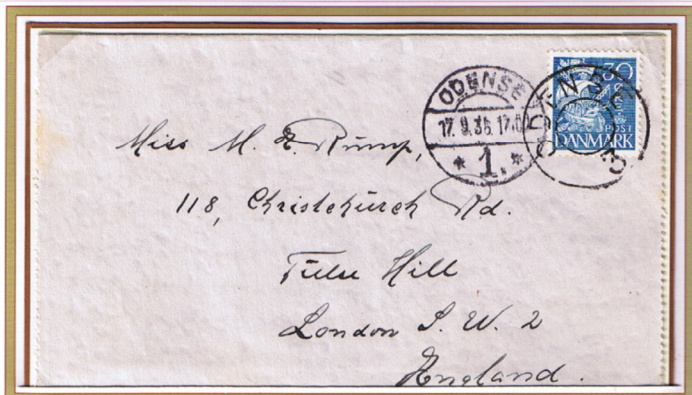 ODENSE
17.9.36.17.
* 1. *
ODENSE
3
30
POST
DANMARK
Miss M. E. Rump,
118, Christchurch Rd.
Tulse Hill
London S. W. 2
England.